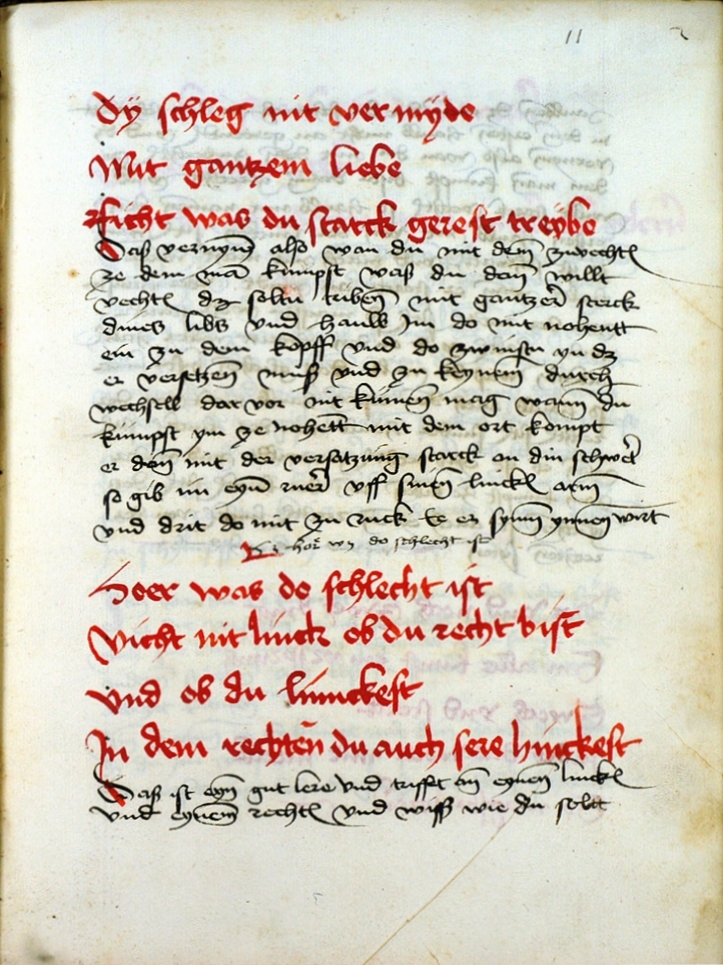 11
Dÿ schleg nit vermÿde
Mit gantzem liebe
Ficht was du starck gerest treybe
Daß vernym̄ also wan du mit dem zuvechtñ
ze dem mā kumpst waß du dan̄ willt
vechtñ dz soltu triben̄ mit gantzer sterck
dines libs vnd hauw Im do mit nohentt
ein zu dem kopff vnd do zwinstu yn dz
er versetzen̄ muß vnd zu keynem durch
wechsell dar vor nit kumen̄ mag wann du
kumpst ym ze nohett mit dem ort kompt
er dan̄ mit der versatzung starck an din schwert
so gib im eyn̄ ruer vff sinen linckñ arm̄
vnd drit do mit zu ruck ee er synn ynnen wirt
hor wz do schlecht ist
Hoer was do schlecht ist
Vicht nit linck ob du recht bist
Vnd ob du linnckest
In dem rechten du auch sere hinckest
Daß ist eyn̄ gut lere vnd trifft an eynen̄ linckñ
vnd eynem̄ rechtñ vnd wiß wie du sollt